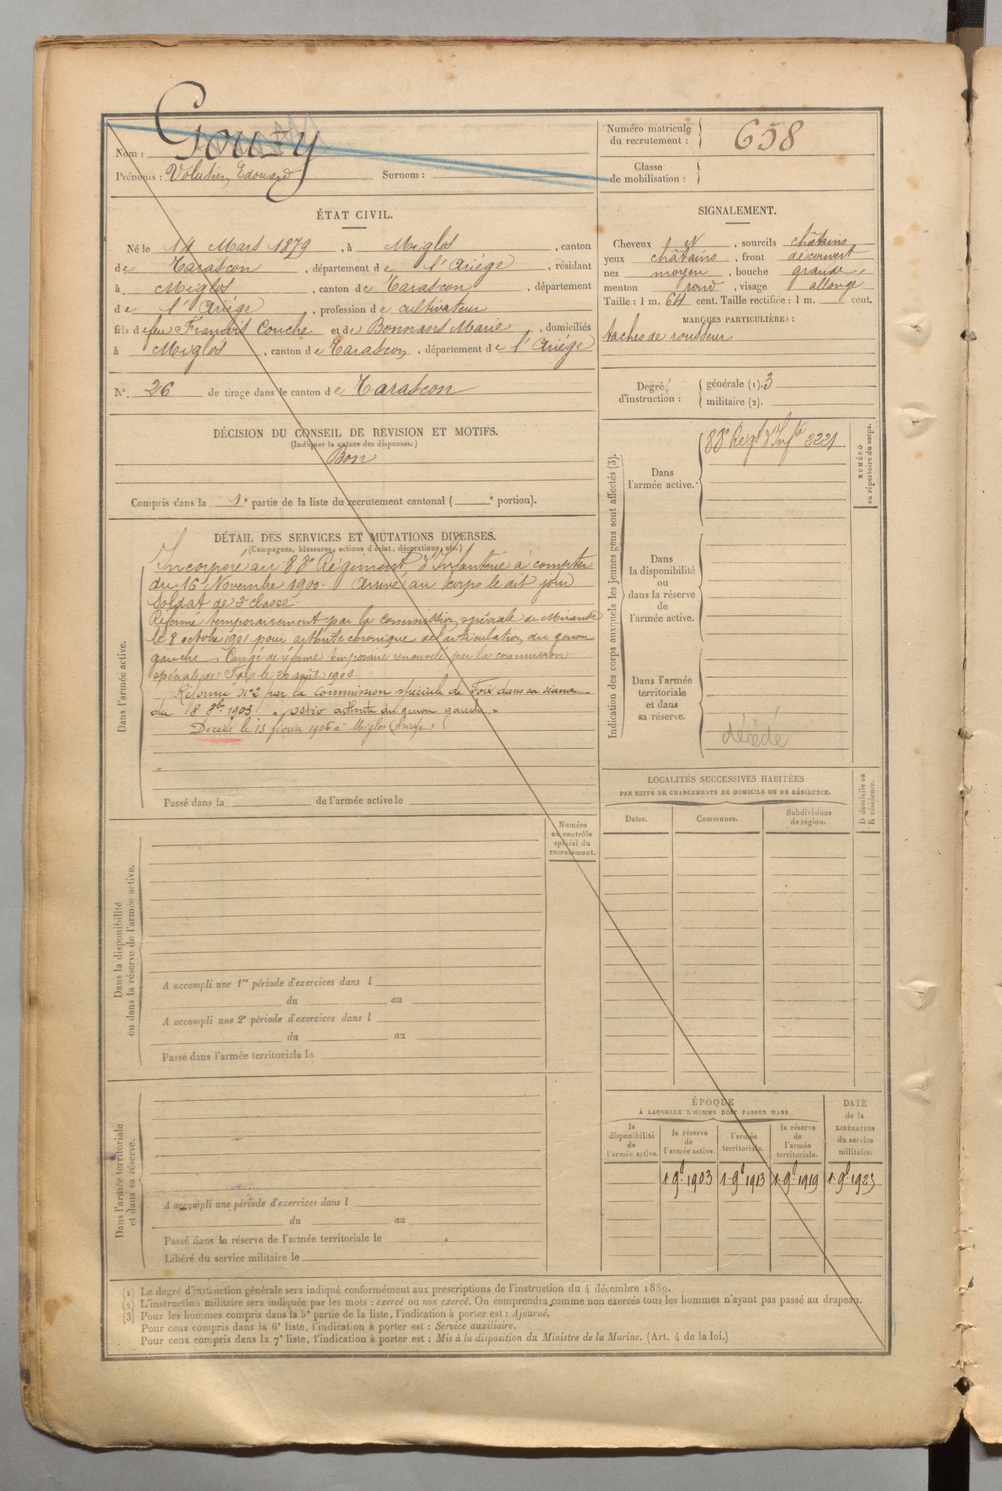 Nom : Gouzy
Prénoms : Edouard Surnom :
Numéro matricule du recrutement : 658
Classe de mobilisation :
ÉTAT CIVIL.
Né le 14 Mars 1879, à Miglos, canton
de Tarascon, département de l'Ariége, résidant
à Miglos, canton de Tarascon, département
de l'Ariége, profession de cultivateur
fils de feu François Couche et de Bonnans Marie, domiciliés
à Miglos, canton de Tarascon, département de l'Ariége
N° 26 de tirage dans le canton de Tarascon
DÉCISION DU CONSEIL DE RÉVISION ET MOTIFS.
(Indiquer la nature des dispenses.)
Bon
Compris dans la 1e partie de la liste du recrutement cantonal ( e portion).
SIGNALEMENT.
Cheveux N, sourcils châtains
yeux châtains, front découvert
nez moyen, bouche grande
menton rond, visage allongé
Taille : 1 m. 64 cent. Taille rectifiée : 1 m. cent.
MARQUES PARTICULIÈRES :
taches de rousseur
Degré d'instruction : générale (1). 3
militaire (2).
DÉTAIL DES SERVICES ET MUTATIONS DIVERSES.
(Campagnes, blessures, actions d'éclat, décorations, etc.)
Dans l'armée active.
Incorporé au 88e Régiment d'Infanterie à compter
du 16 Novembre 1900. Arrivé au corps le dit jour
Soldat de 2e classe.
Réformé temporairement par la commission spéciale de Mirande
le 8 octobre 1901 pour arthrite chronique de l'articulation du genou
gauche. Congé de réforme temporaire renouvelé par la commission
spéciale de Foix le 20 août 1902.
Réformé N°2 par la Commission spéciale de Foix dans sa séance
du 18 8bre 1903 arthrite du genou gauche.
Décédé le 13 février 1906 à Miglos (Ariège)
Passé dans la de l'armée active le
Indication des corps auxquels les jeunes gens sont affectés (3).
Dans l'armée active.
88e Regt d'Infie 3221
NUMÉRO au répertoire du corps.
Dans la disponibilité ou dans la réserve de l'armée active.
Dans l'armée territoriale et dans sa réserve.
décédé
LOCALITÉS SUCCESSIVES HABITÉES
PAR SUITE DE CHANGEMENTS DE DOMICILE OU DE RÉSIDENCE.
Dates. Communes. Subdivisions de région. D domicile ou R résidence.
Dans la disponibilité ou dans la réserve de l'armée active.
Numéro au contrôle spécial du recrutement.
A accompli une 1re période d'exercices dans l
du au
A accompli une 2e période d'exercices dans l
du au
Passé dans l'armée territoriale le
Dans l'armée territoriale et dans sa réserve.
A accompli une période d'exercices dans l
du au
Passé dans la réserve de l'armée territoriale le
Libéré du service militaire le
ÉPOQUE
À LAQUELLE L'HOMME DOIT PASSER DANS
la disponibilité de l'armée active. la réserve de l'armée active. l'armée territoriale. la réserve de l'armée territoriale.
DATE de la LIBÉRATION du service militaire.
1 9e 1903 1 9e 1913 1 9e 1919 1 9e 1925
(1) Le degré d'instruction générale sera indiqué conformément aux prescriptions de l'instruction du 4 décembre 1889.
(2) L'instruction militaire sera indiquée par les mots : exercé ou non exercé. On comprendra comme non exercés tous les hommes n'ayant pas passé au drapeau.
(3) Pour les hommes compris dans la 5e partie de la liste, l'indication à porter est : Ajourné.
Pour ceux compris dans la 6e liste, l'indication à porter est : Service auxiliaire.
Pour ceux compris dans la 7e liste, l'indication à porter est : Mis à la disposition du Ministre de la Marine. (Art. 4 de la loi.)